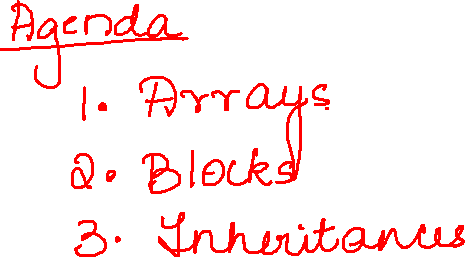 Agenda
1. Arrays
2. Blocks
3. Inheritances